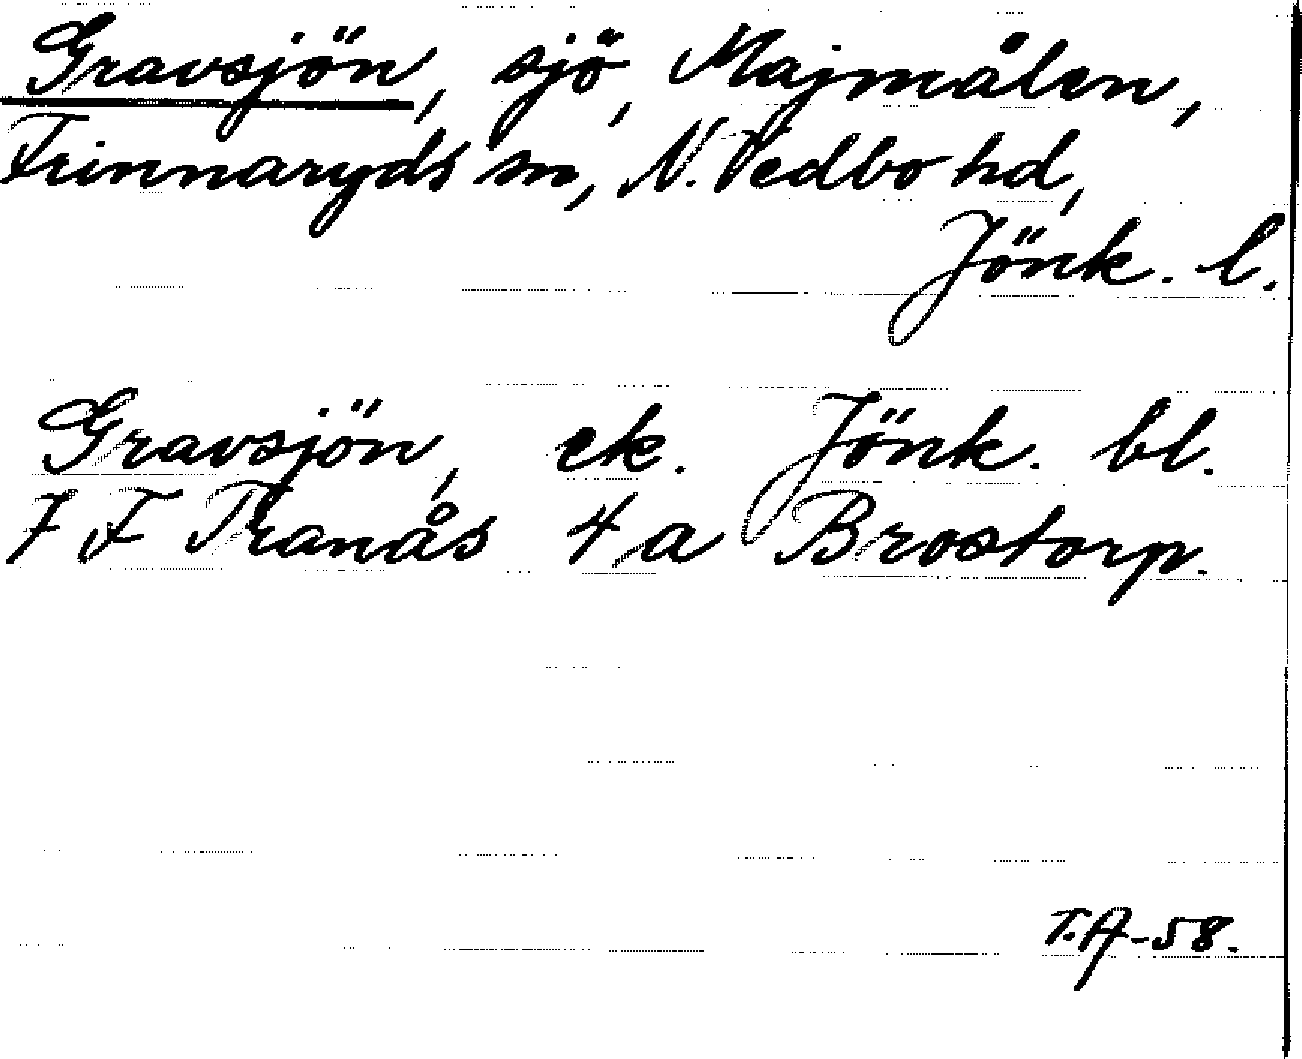 Gravsjön, sjö, Majmålen,
Linnaryds sn, N. Vedbo hd,
Jönk. l.
Gravsjön, ek. Jönk. bl.
7 F Tranås 4 a Brostorp.
T.A-58.